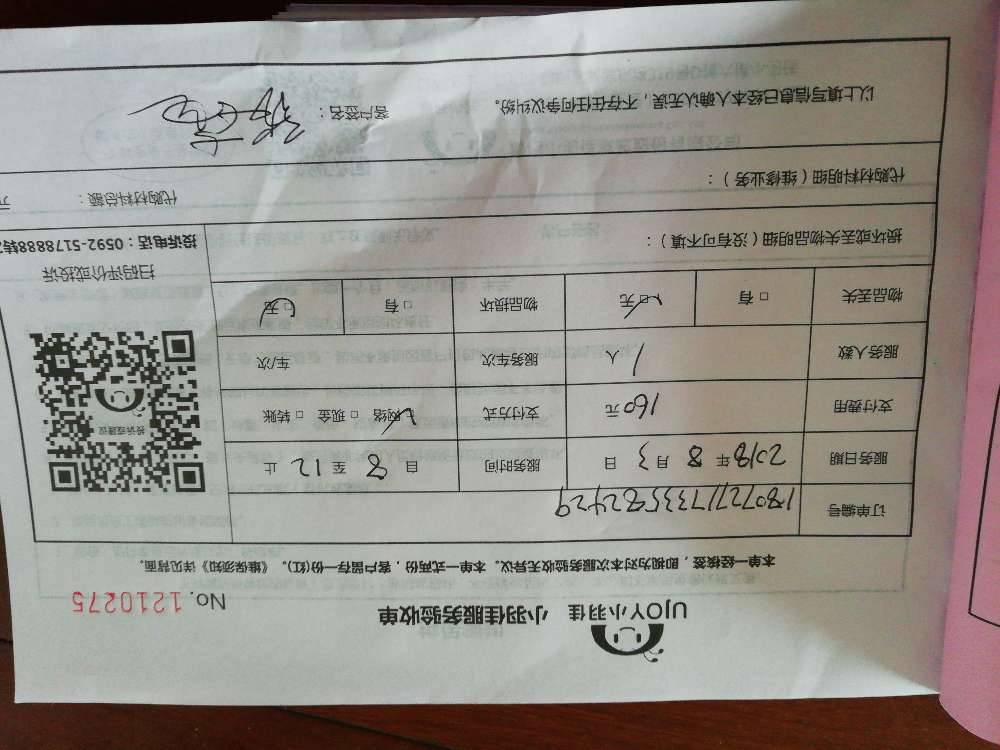 UJOY小羽佳 小羽佳服务验收单
No. 1210275
本单一经核签，即视为对本次服务验收无异议。本单一式两份，客户留存一份(红)。《维保须知》详见背面。
订单编号 180727173358 2429
服务日期 2018年 8 月 3 日 服务时间 日 8 至 12 止
支付费用 160元 支付方式 ☑网络 □现金 □转账
服务人数 1 人 服务车次 车/次
物品丢失 □有 ☑无 物品损坏 □有 ☑无
投诉或建议
扫码评价或投诉
投诉电话：0592-5178888转
损坏或丢失物品明细（没有可不填）：
代购材料明细（维修业务）： 代购材料总额： 元
以上填写信息已经本人确认无误，不存在任何争议纠纷。 客户签名：